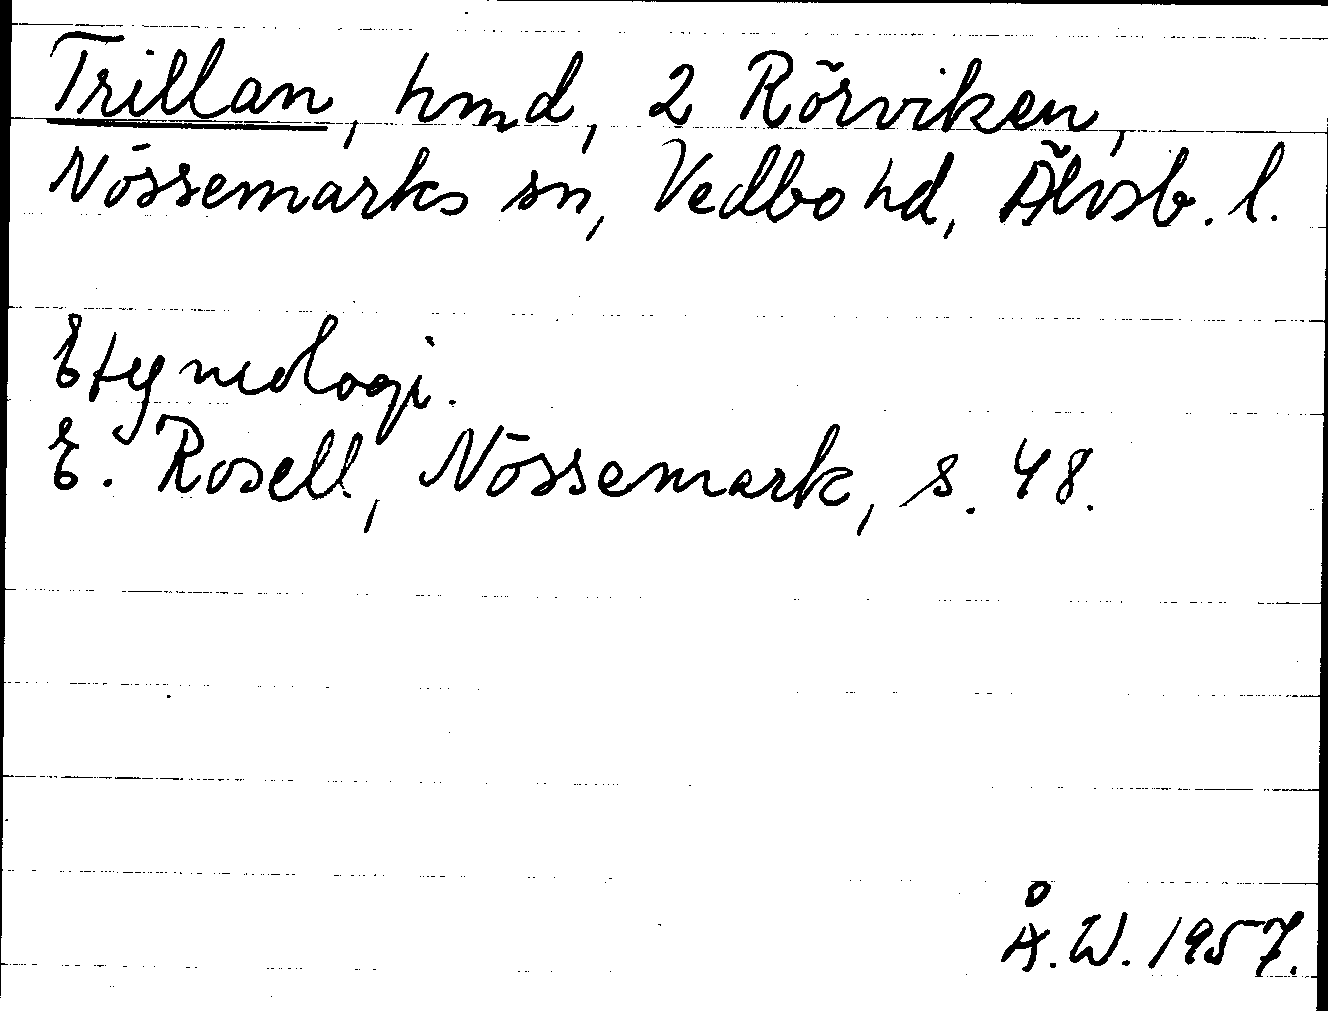 Trillan, hmd, 2 Rörviken,
Nössemarks sn, Vedbo hd, Älvsb. l.
Etymologi.
E. Rosell, Nössemark, s. 48.
Å.W. 1957.